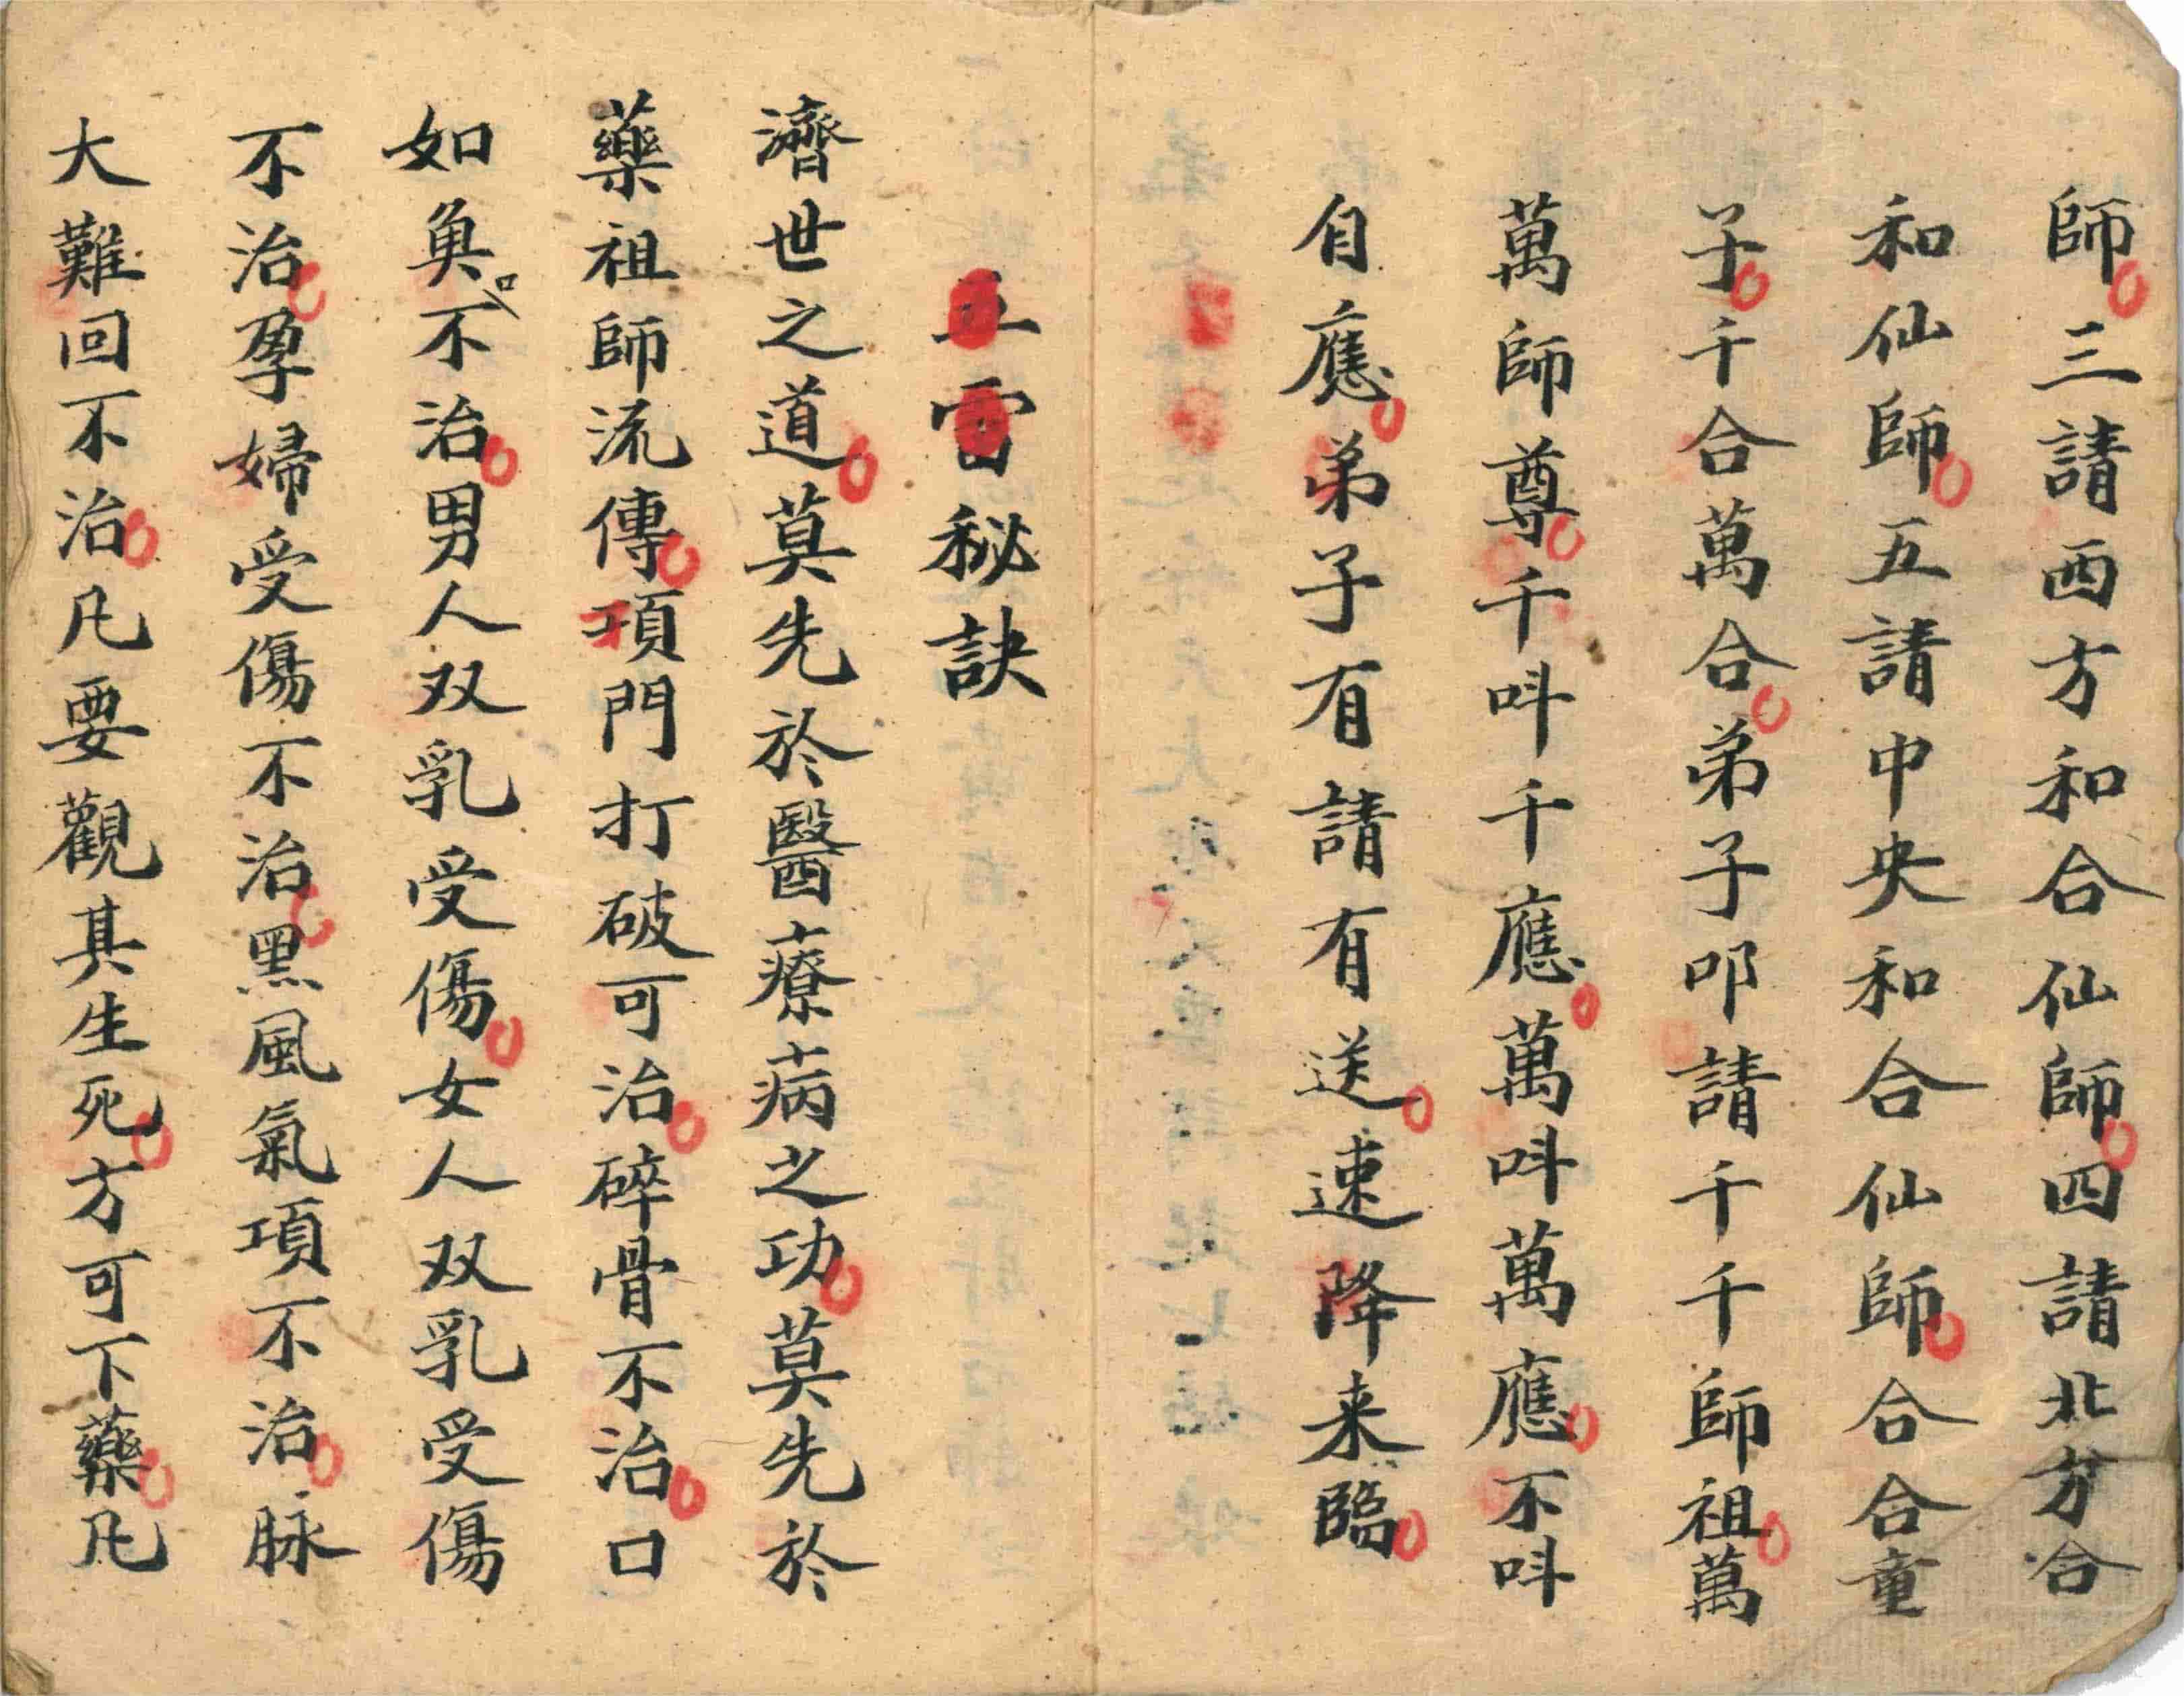 師三請西方和合仙師四請北方合
和仙師五請中央和合仙師合合童
子千合萬合弟子叩請千千師祖萬
萬師尊千呌千應萬呌萬應不呌
自應弟子有請有送速降来臨
雷秘訣
濟世之道莫先於醫療病之功莫先於
藥祖師流傳項門打破可治碎骨不治口
如魚口不治男人双乳受傷女人双乳受傷
不治孕婦受傷不治黑風氣項不治脉
大難回不治凡要觀其生死方可下藥凡